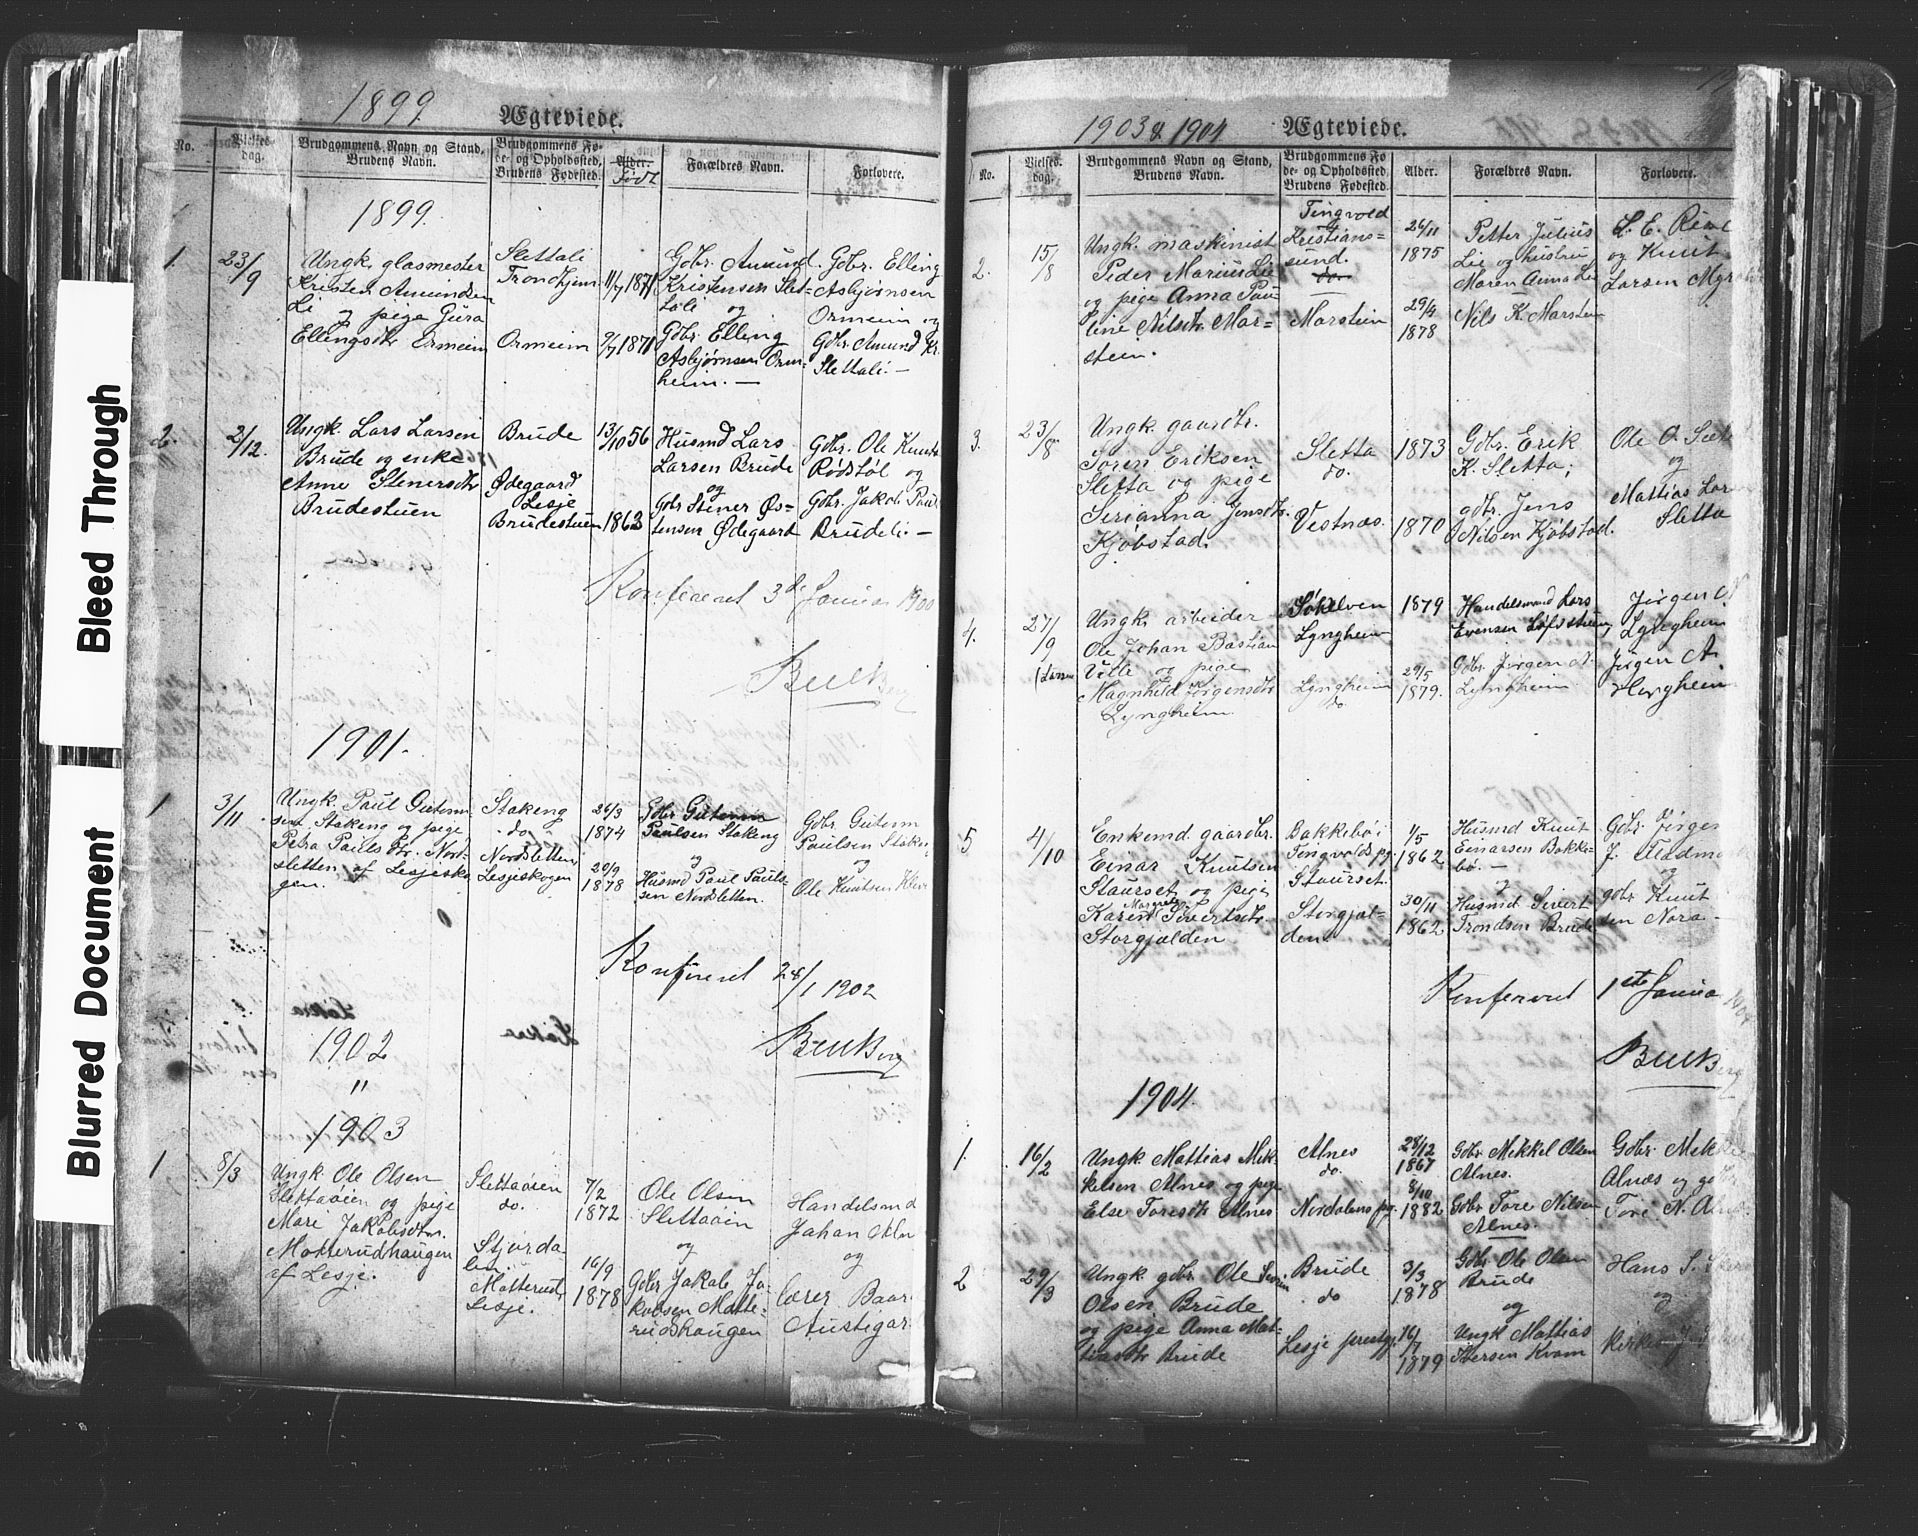 Bleed Through
Blurred Document
1899
Ægteviede.
No.
Vielses-
dag.
Brudgommens Navn og Stand,
Brudens Navn.
Brudgommens Fø-
de- og Opholdssted,
Brudens Fødested.
Alder.
Født
Forældres Navn.
Forlovere.
1899.
1.
23/9
Ungk. glasmester
Kristen Amundsen
Li og pige Gura
Ellingsdtr Ormeim
Slettali
Trondhjem
Ormeim
11/7 1871
9/7 1871
Gdbr. Amund
Kristensen Slet-
tali og
Gdbr. Elling
Asbjørnsen Orm-
heim. —
Gdbr. Elling
Asbjørnsen
Ormeim og
Gdbr. Amund Kr.
Slettali —
2.
2/12
Ungk. Lars Larsen
Brude og enke
Anne Stenersdtr
Brudestuen
Brude
Ødegaard
Lesje
Brudestuen
13/10 56
1863
Husmd Lars
Larsen Brude
og
Gdbr Stener Øs-
tensen Ødegaard
Gdbr. Ole Knuts
Rødstøl og
Gdbr. Jakob Paul
Brudeli —
Konfereret 3de Januar 1900
1901.
1
3/11
Ungk. Paul Guttorm-
sen Stakeng og pige
Petra Paulsdtr. Nord-
sletten, af Lesjesko-
gen.
Stakeng
do
Nordsletten
Lesjeskogen
26/3
1874
20/9
1878
Gdbr Guttorm
Paulsen Stakeng
og
Husmd Paul Pauls-
sen Nordsletten.
Gdbr. Guttorm
Paulsen Stakeng
og
Ole Knutsen
Konfereret 28/1 1902
1902
"
1903
1
8/3
Ungk Ole Olsen
Slettaøien og pige
Mari Jakobsdtr.
Motterudhaugen
af Lesje.
Slettaøien
do.
Stjørda-
len.
Motterud
Lesje.
7/2
1872
16/9
1878
Ole Olsen
Slettaøien
og
Gdbr Jakob Ja-
kobsen Motte-
rudshaugen
Handelsmd
Johan
og
lærer Baar
Austigar
1903 & 1904
Ægteviede.
No.
Vielses-
dag.
Brudgommens Navn og Stand,
Brudens Navn.
Brudgommens Fø-
de- og Opholdssted,
Brudens Fødested.
Alder.
Forældres Navn.
Forlovere.
2.
15/8
Ungk. maskinist
Peder Marius Lie
og pige Anna Pau-
line Nilsdtr Mar-
stein.
Tingvold
Kristians-
sund.
do.
Marstein
26/11
1875
29/4
1878
Petter Julius
Lie og hustru
Maren Anna Lie
Nils K. Marstein
og Knut
Larsen
3.
23/8
Ungk. gaardbr.
Søren Eriksen
Sletta og pige
Serianna Jensdtr.
Kjøbstad.
Sletta
do.
Vestnæs.
1873
1870
Gdbr. Erik
K. Sletta;
gdbr. Jens
Nilsen Kjøbstad.
Ole O.
og
Mattias Lar
Sletta
4.
27/9
Ungk. arbeider
Ole Johan Bastian
(Larsen
Velle og pige
Magnhild Jørgensdtr
Lyngheim
Søkelven
Lyngheim
Lyngheim
do.
1879
29/5
1879.
Handelsmand Lars
Evensen
Gdbr Jørgen N.
Lyngheim
Jørgen N
Lyngheim
Jørgen A.
Horgheim
5
4/10
Enkemd. gaardbr.
Einar Knutsen
Staurset og pige
Karen Margrete Sivertsdtr.
Storgjelden
Bakkebø i
Tingvolds pg.
Staurset.
Storgjel-
den.
1/5
1862
30/11
1862
Husmd Knut
Einarsen Bakke-
bø. —
og
Husmd Sivert
Trondsen Brude
Gdbr. Jørgen
J.
og
gdbr Knut
sen Nora —
Konfereret 1ste Janua 1904
1904.
1
16/2
Ungk. Mattias Mik-
kelsen Alnes og pige
Else Toresdtr Alnes
Alnes
do.
Nordalens pg.
28/12
1867
8/10
1882
Gdbr Mikkel Olsen
Alnes.
Gdbr Tore Nilsen
Alnes.
Gdbr. Mikke
Alnæs og gdbr
Tore N. Alnes
2
29/3
Ungk. gdbr. Ole
Olsen Brude
og pige Anna Mat-
tiasdtr Brude
Brude
do
Lesje prestgj.
3/3
1878
16/7
1879
Gdbr Ole Olsen
Brude
og
Ungk Mattias
Iversen Kvam
Hans S.
og